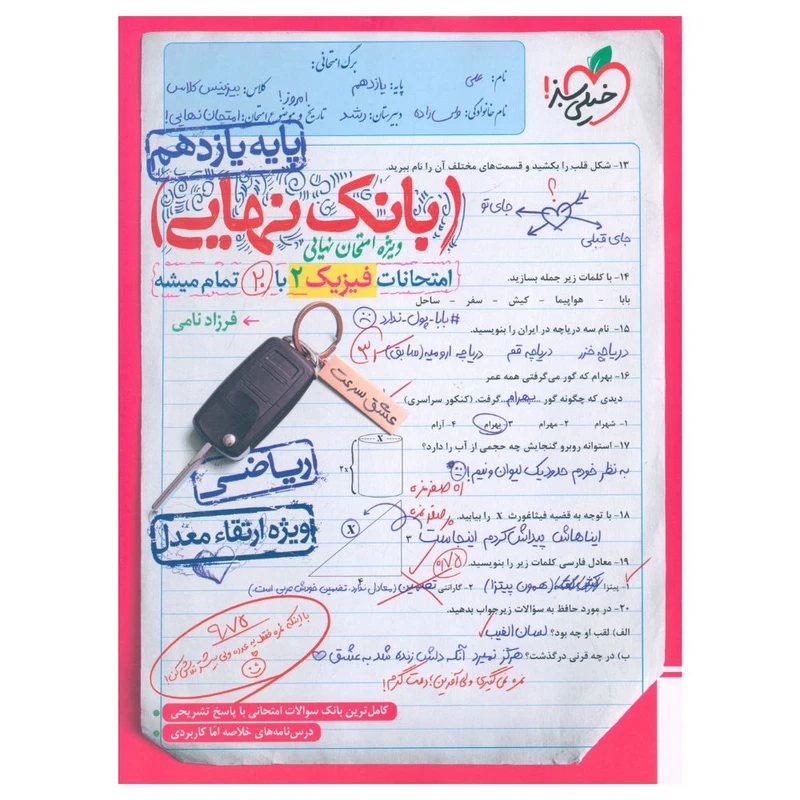 برگ امتحانی:
نام: علی
پایه: یازدهم
کلاس: بیزینس کلاس
نام خانوادگی: ولی زاده
دبیرستان: رشد
تاریخ و موضوع امتحان: امتحان نهایی!
امروز!
خیلی سبز!
پایه یازدهم
(بانک نهایی)
ویژه امتحان نهایی
امتحانات فیزیک ۲ با ۲۰ تمام میشه
فرزاد نامی
۱۳- شکل قلب را بکشید و قسمت‌های مختلف آن را نام ببرید.
؟
جای تو
جای قبلی
۱۴- با کلمات زیر جمله بسازید.
بابا - هواپیما - کیش - سفر - ساحل
#بابا-پول-ندارد
۱۵- نام سه دریاچه در ایران را بنویسید.
دریاچه خزر دریاچه قم دریاچه ارومیه (سابق)
۱۶- بهرام که گور می‌گرفتی همه عمر
دیدی که چگونه گور ...بهرام... گرفت. (کنکور سراسری)
۱- شهرام ۲- مهرام ۳- بهرام ۴- آرام
عشق سرعت
۱۷- استوانه روبرو گنجایش چه حجمی از آب را دارد؟
به نظر خودم حدود یک لیوان و نیم!
X
۲X
ریاضی
ویژه ارتقاء معدل
۱۸- با توجه به قضیه فیثاغورث X را بیابید.
ایناهاش پیداش کردم اینجاست
X
۳
۴
۱۹- معادل فارسی کلمات زیر را بنویسید.
۰/۷۵
۱- پیتزا (همون پیتزا) ۲- گارانتی تضمین (معادل ندارد. تضمین خودش عربی است.)
۲۰- در مورد حافظ به سؤالات زیر جواب بدهید.
الف) لقب او چه بود؟ لسان الغیب
ب) در چه قرنی درگذشت؟ هرگز نمیرد آنکه دلش زنده شد به عشق
نمره نمی‌گیری ولی آفرین؛ دمت گرم!
۹/۷۵
با اینکه نمره فقط یه عدده ولی بیشتر تلاش کن!
کامل‌ترین بانک سوالات امتحانی با پاسخ تشریحی
درس‌نامه‌های خلاصه اما کاربردی